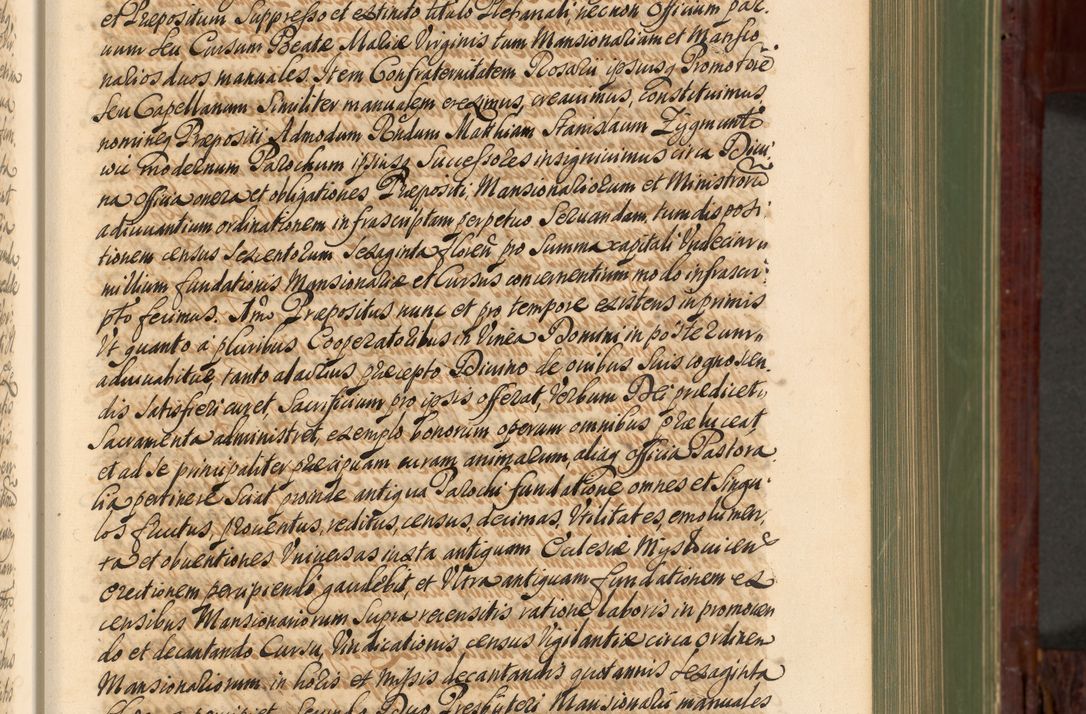 et Præpositum suppresso et extincto titulo Plebanali, nec non Officium par-
vum seu Cursum Beatæ Mariæ Virginis tum Mansionariam et Mansio
narios duos manuales. Item Confraternitatem Rosarii ipsiusq Promotorē
seu Capellanum similiter manualem ereximus, creavimus, constituimus
nomineq Præpositi Admodum Rñdum Mathiam Stanislaum Zygmunto
wic modernum Parochum ipsiusq Successores insignivimus circa Divi-
na officia onera et obligationes Præpositi, Mansionariorum et Ministrorū
adiuvantium ordinationem infrascriptam perpetuo servandam, tum disposi-
tionem census sexcentorum sexaginta floreñ pro summa capitali Undecim
millium fundationis Mansionariæ et Cursus concernentium modo infrascri-
pto fecimus. Imo Præpositus nunc et pro tempore existens inprimis
Ut quanto a pluribus Cooperatoribus in Vinea Domini in posterum
adiuvabitur, tanto alacrius præcepto Divino de ovibus suis cognoscen
dis satisfieri curet, Sacrificium pro ipsis offerat, Verbum Dei prædicet,
Sacramenta administret, exemplo bonorum operum omnibus præluceat
et ad se principaliter præcipuam curam animarum, aliaq officia Pastora
lia pertinere sciat proinde antiqua Parochi fundatione omnes et singu
los fructus, proventus, reditus, census, decimas, Utilitates, emolumen
ta et obventiones Universas iuxta antiquam Ecclesiæ Myslvicen
erectionem percipiendo gaudebit, et Ultra antiquam fundationem ex
censibus Mansionariorum supra recensitis ratione laboris in promoven
do et decantando Cursu, Vindicationis census Vigilantiæ circa ordinem
Mansionariorum in horis et missis decantandis quotannis sexaginta